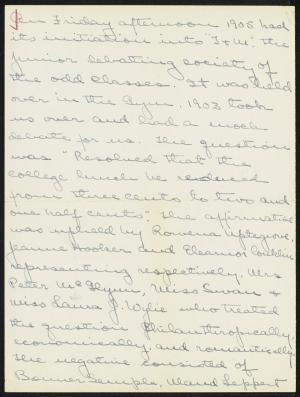 On Friday afternoon 1905 had
its initiation into "I & M", the
junior debating society of
the odd classes. It was held
over in the Gym. 1903 took
us over and had a mock
debate for us. The question
was "Resolved that the
college lunch be reduced
from three cents to two and
one half cents". The affirmative
was upheld by Rowena
Jeanne and Eleanor
representing respectively, Mrs
Peter Mc Flynn, Miss Swan &
Miss Laura J. Wylie who treated
the question philanthropically,
economically, and romantically.
The negative consisted of
Bonner Temple, Maud Leppert